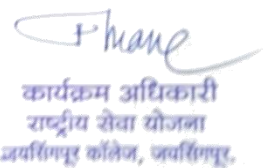 कार्यक्रम अधिकारी
राष्ट्रीय सेवा योजना
जयसिंगपूर कॉलेज, जयसिंगपूर.